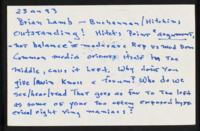 25 Jan 93
Brian Lamb - Buchanan/Hitchins
Outstanding! Hitch's "Point" argument,
- for balance = moderate Rep vs mod Dem
Common media orients itself to the
middle, calls it Left. Why don't you
give Lewin Knox a forum? Who do we
see/hear/read that goes as far to the left
as some of your too often exposed hyper
right wing maniacs?